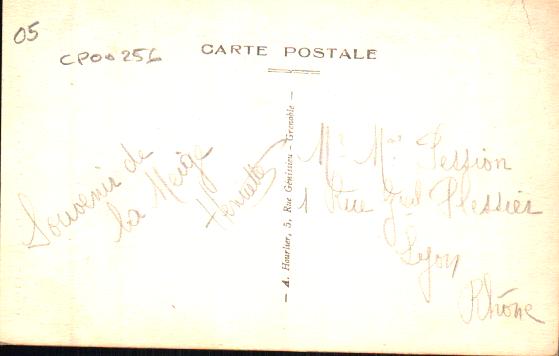 05
CP00256
CARTE POSTALE
Souvenir de
la Neige
Henriette
A. Hourlier, 5, Rue Génissieu - Grenoble
Mr Mme Pession
1 Rue Gal Plessier
Lyon
Rhône